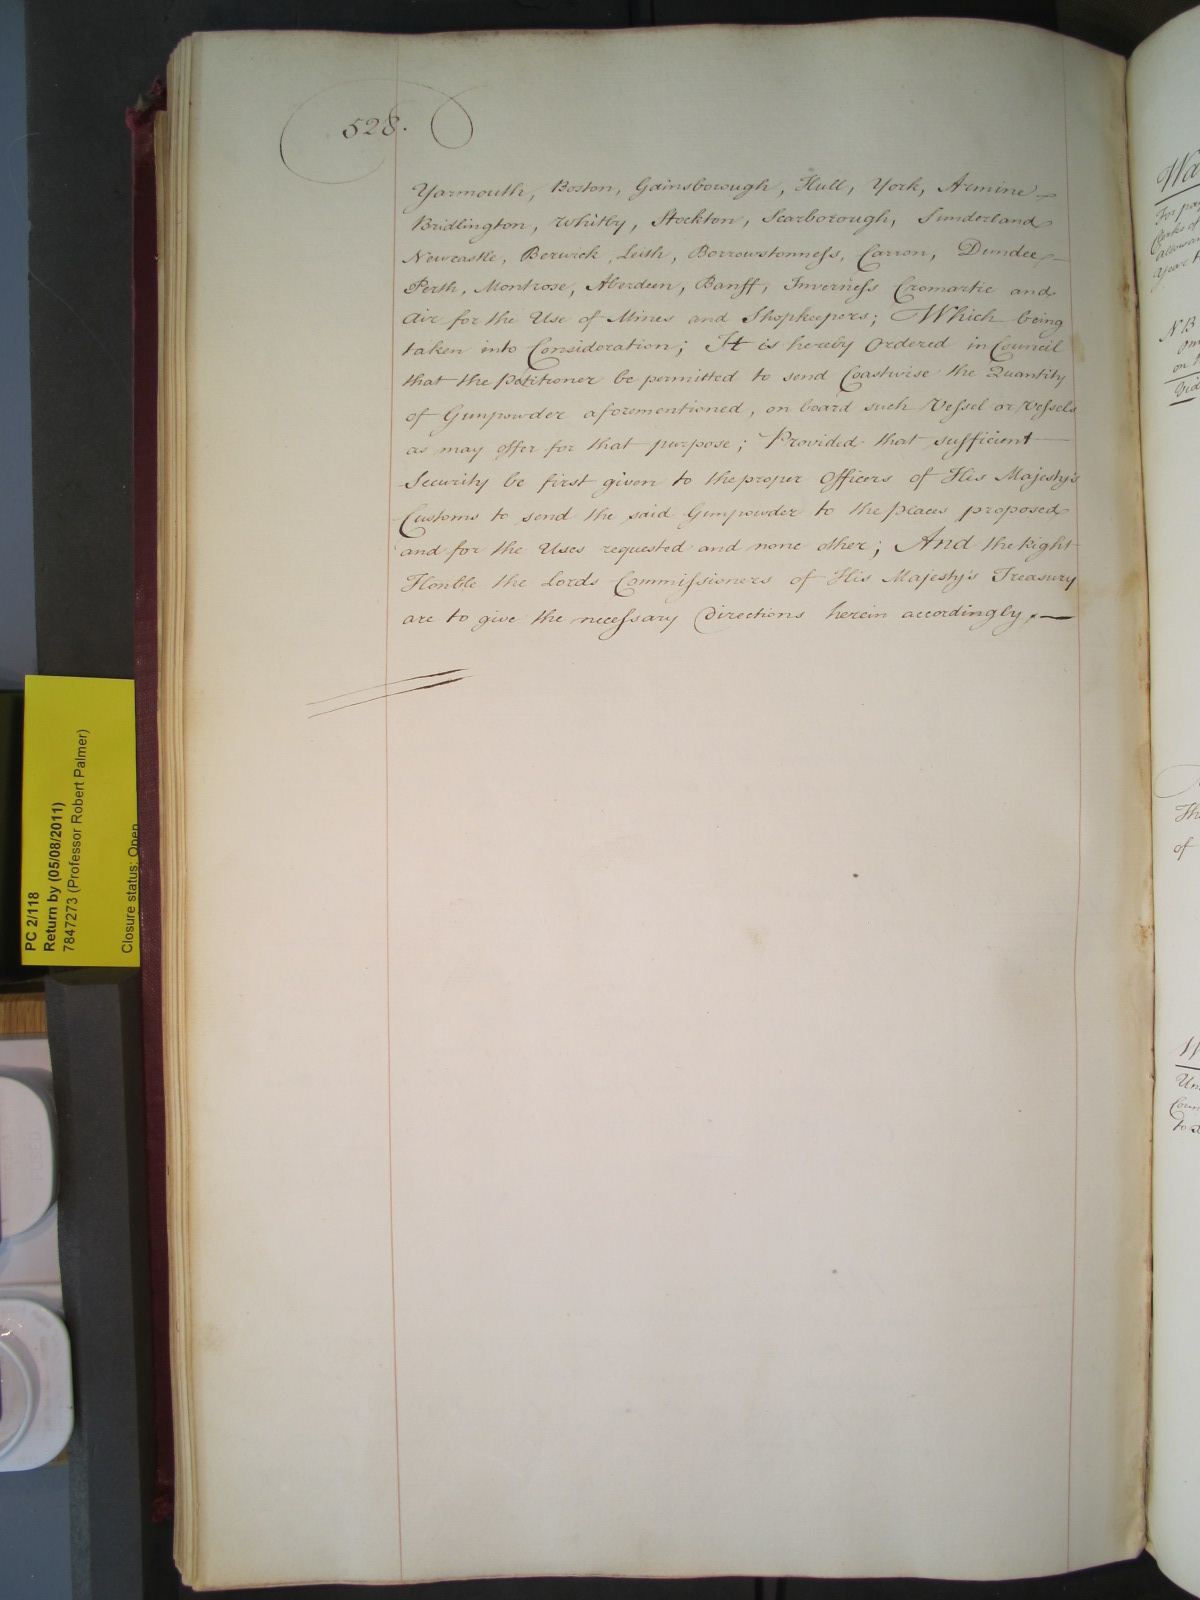 528.
Yarmouth, Boston, Gainsborough, Hull, York, Armine
Bridlington, Whitby, Stockton, Scarborough, Sunderland
Newcastle, Berwick, Leith, Borrowstonneſs, Carron, Dundee
Perth, Montrose, Aberdeen, Banff, Inverneſs Cromartie and
Air for the Use of Mines and Shopkeepers; Which being
taken into Consideration; It is hereby Ordered in Council
that the Petitioner be permitted to send Coastwise the Quantity
of Gunpowder aforementioned, on board such Veſsel or Veſsels
as may offer for that purpose; Provided that sufficient
Security be first given to the proper Officers of His Majesty's
Customs to send the said Gunpowder to the places proposed
and for the Uses requested and none other; And the Right
Honble the Lords Commiſsioners of His Majesty's Treasury
are to give the neceſsary Directions herein accordingly.—
PC 2/118
Return by (05/08/2011)
7847273 (Professor Robert Palmer)
Closure status: Open
N B
on
Th
of